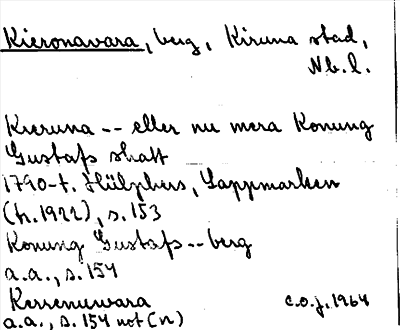 Kieronavara, berg, Kiruna stad,
Nb.l.
Kieruna -- eller nu mera Konung
Gustafs skatt
1790-t. Hülphers, Lappmarken
(tr. 1922), s. 153
Konung Gustafs -- berg
a.a., s. 154
Kerrenuwara c.o.j. 1964
a.a., s. 154 not (n)